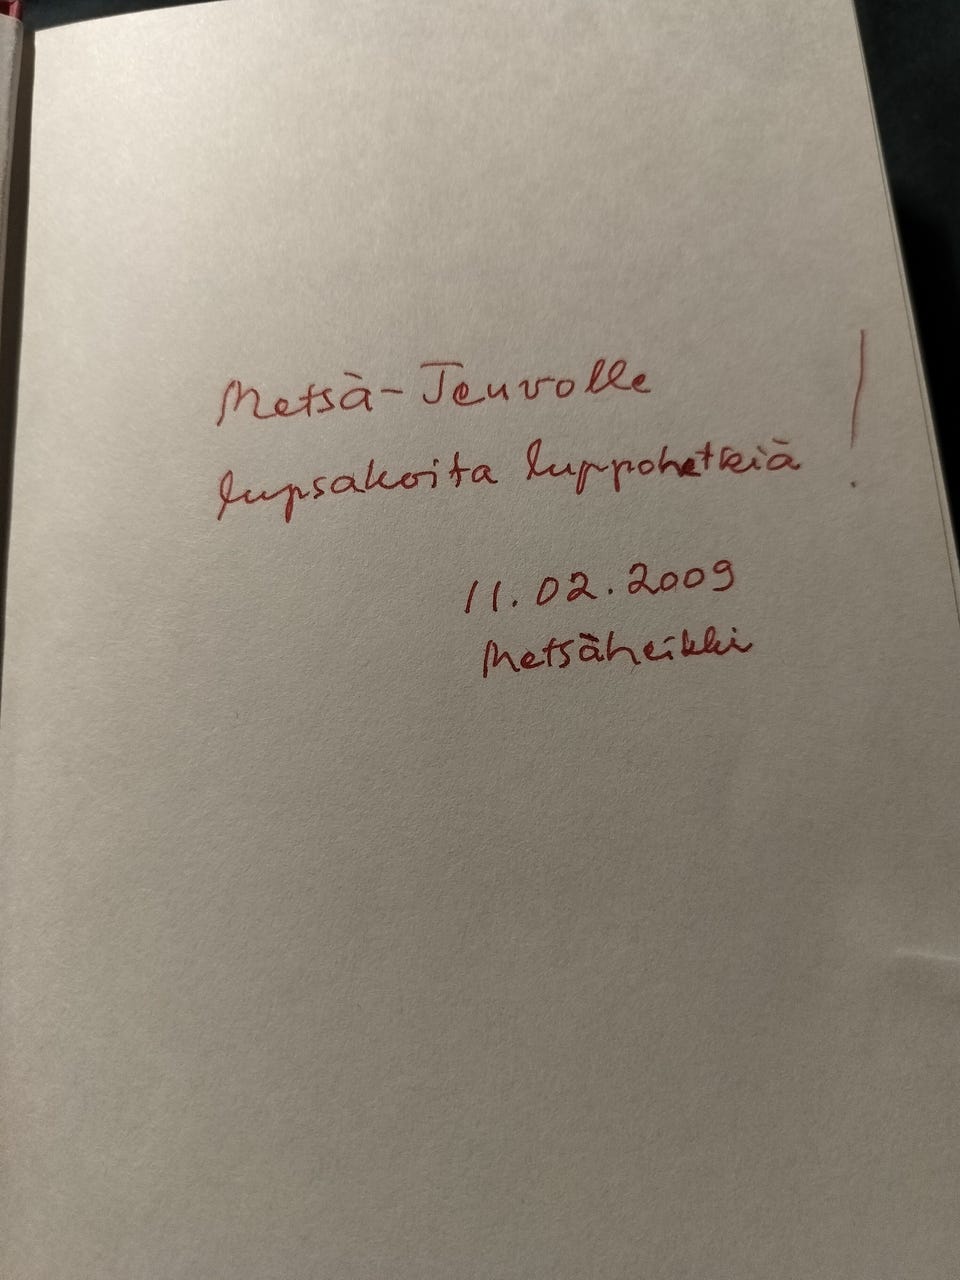 Metsä-Teuvolle
lupsakoita luppohetkiä!
11.02.2009
Metsäheikki